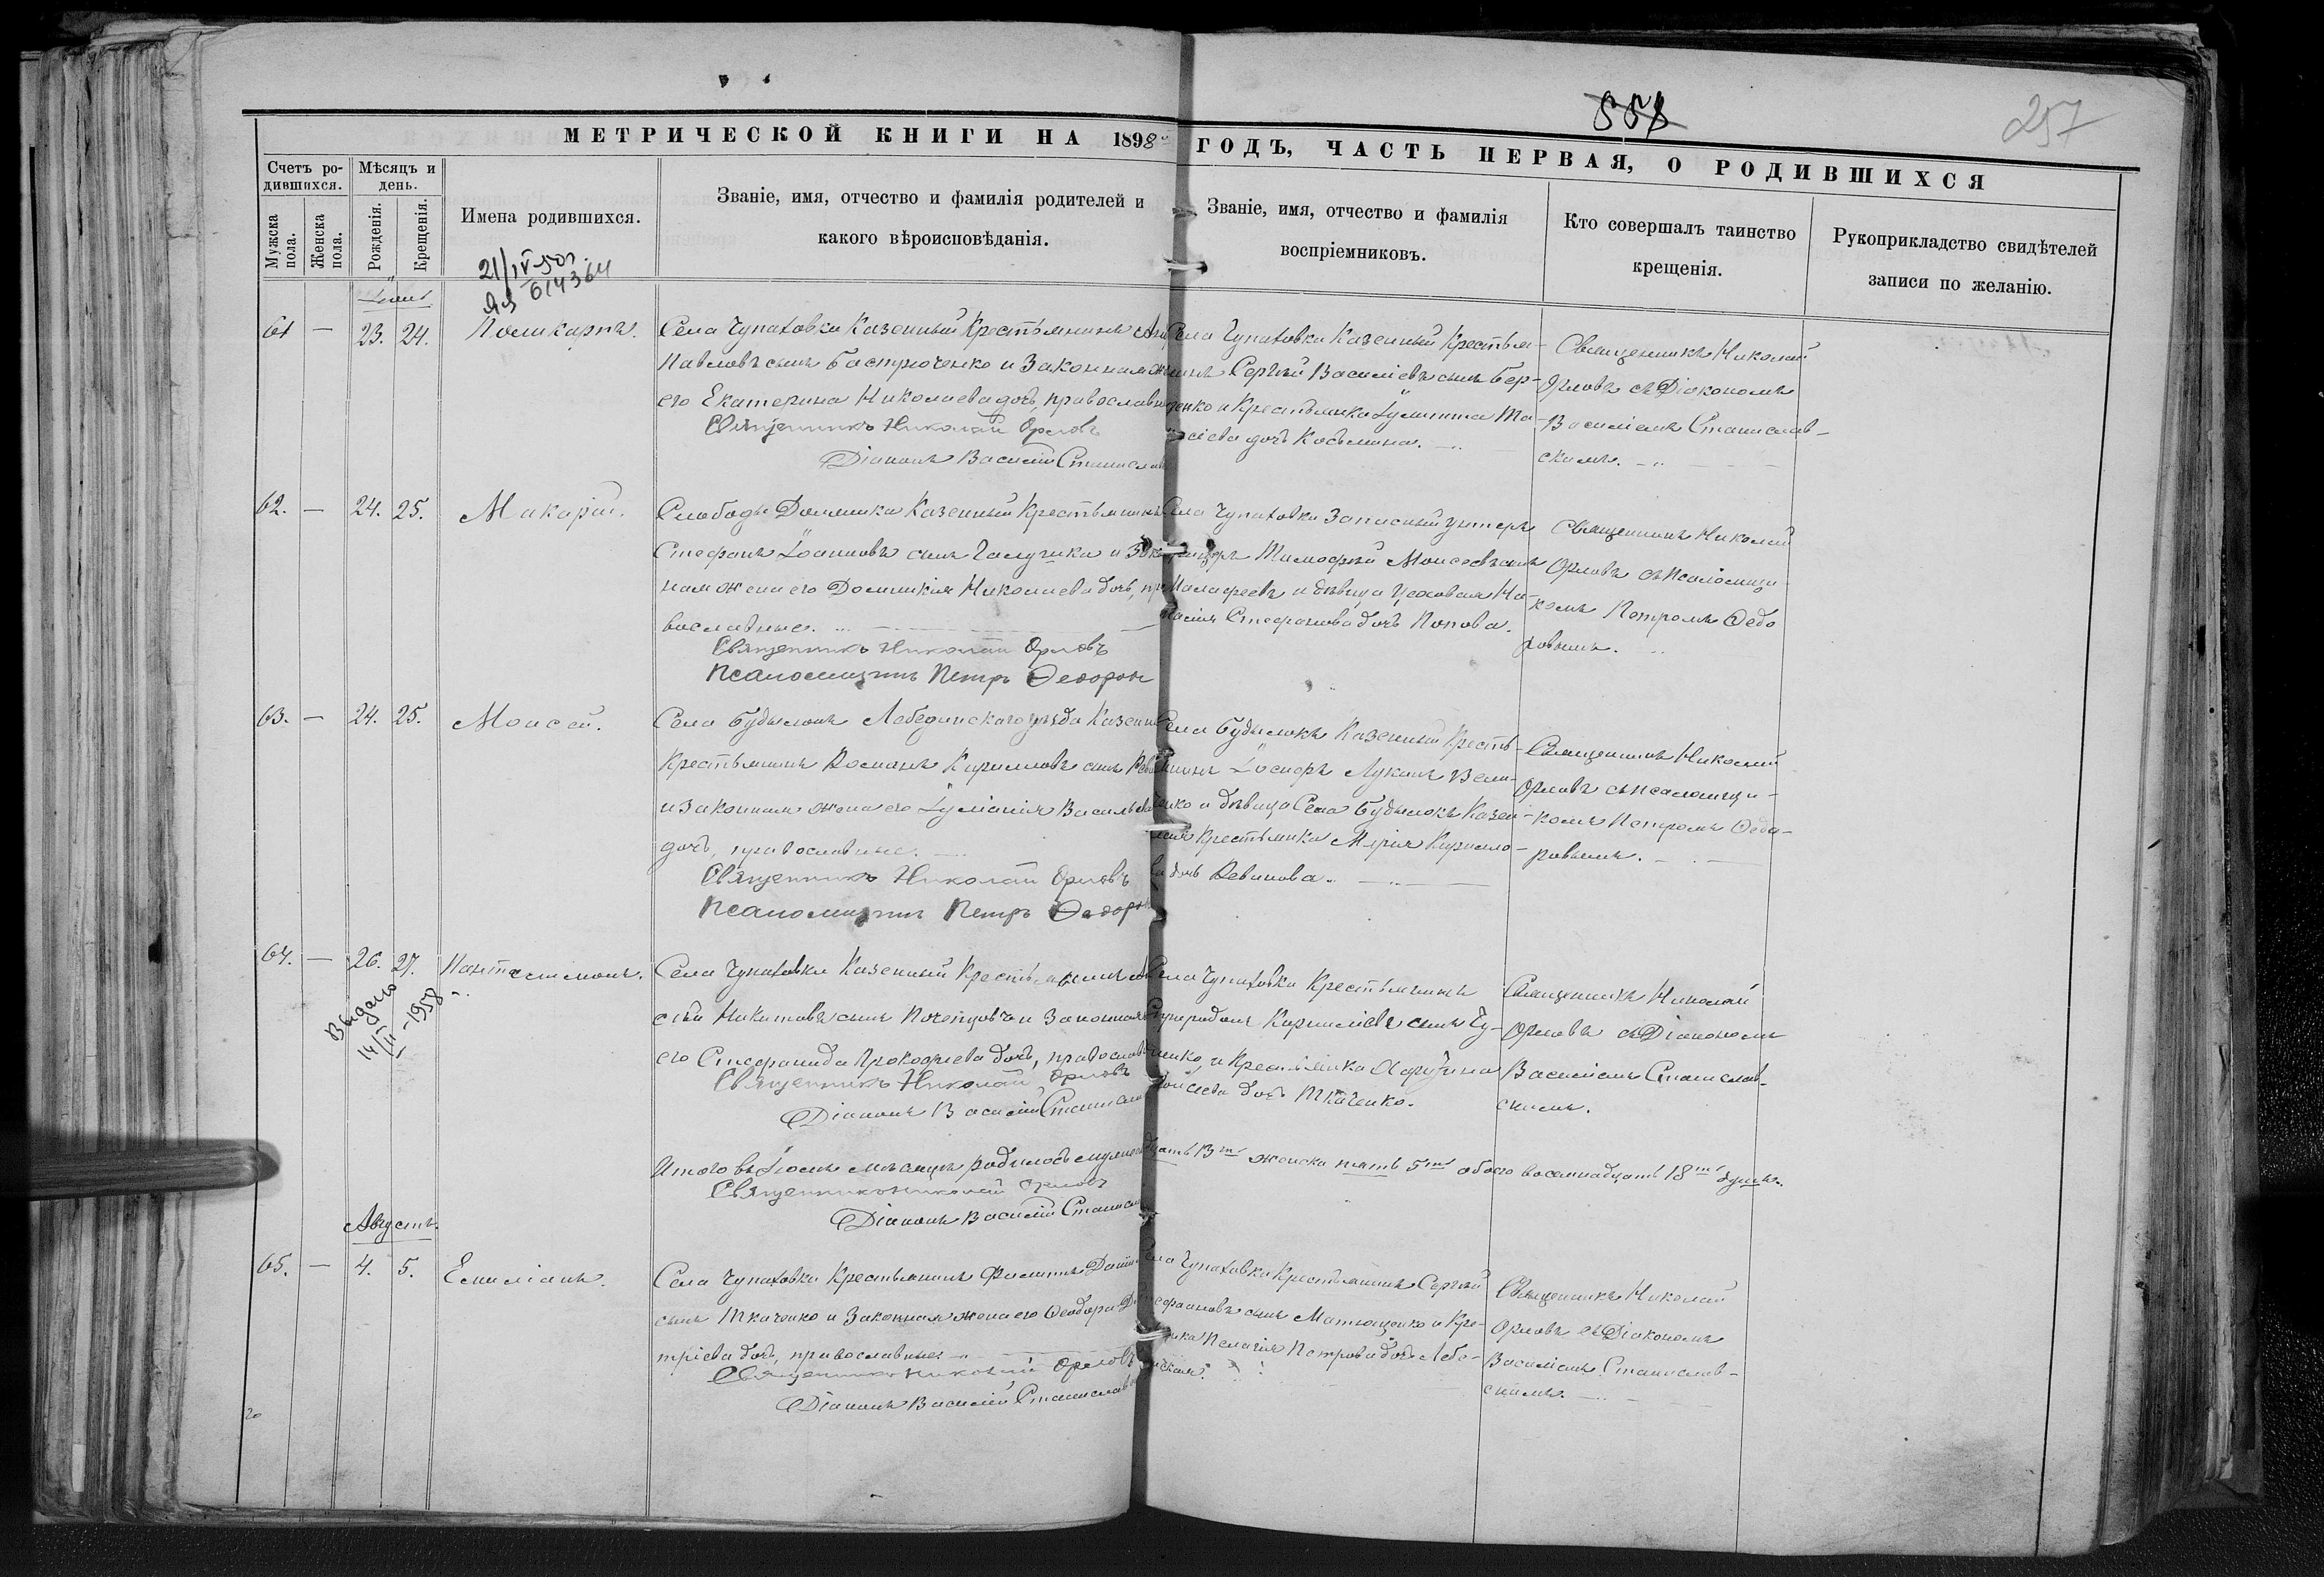 558
257
МЕТРИЧЕСКОЙ КНИГИ НА 1898 ГОДЪ, ЧАСТЬ ПЕРВАЯ, О РОДИВШИХСЯ
Счетъ ро-
дившихся.
Мужска
пола.
Женска
пола.
Мѣсяцъ и
день.
Рожденія.
Крещенія.
Имена родившихся.
Званіе, имя, отчество и фамилія родителей и
какого вѣроисповѣданія.
Званіе, имя, отчество и фамилія
воспріемниковъ.
Кто совершалъ таинство
крещенія.
Рукоприкладство свидѣтелей
записи по желанію.
614364
61 — 23. 24. Поликарпъ.
Села Чупаховки Казенный Крестьянинъ
Павловъ сынъ Бастрюченко и Законная
его Екатерина Николаева дочь, православн
Священникъ Николай Орловъ
Діаконъ Василій Станислав
Села Чупаховки Казенный Крестья-
нинъ Сергѣй Василіевъ сынъ Бер-
ченко и Крестьянка Іулитта Та-
расіева дочь Косьмина.
Священникъ Николай
Орловъ съ Діакономъ
Василіемъ Станислав-
скимъ.
62. — 24. 25. Макарій.
Слободы Должика Казенный Крестьянинъ
Стефанъ Іоанновъ сынъ Галушка и Зако
ная жена его Домникія Николаева дочь, пра
вославные.
Священникъ Николай Орловъ
Псаломщикъ Петръ Федоров
Села Чупаховки Запасный унтеръ
офицеръ Тимофей Моисеевъ сынъ
Малафеевъ и дѣвица Цеховая На-
талія Стефанова дочь Попова.
Священникъ Николай
Орловъ съ Псаломщи
комъ Петромъ Федо
ровымъ.
63. — 24. 25. Моисей.
Села Будылокъ Лебединскаго уѣзда Казенн
Крестьянинъ Романъ Кирилловъ сынъ Рев
и Законная жена его Іуліанія Васильева
дочь, православные.
Священникъ Николай Орловъ
Псаломщикъ Петръ Федоров
Села Будылокъ Казенный Кресть-
янинъ Іосифъ Лукинъ Вели-
ченко и дѣвица Села Будылокъ Казен-
ная Крестьянка Марія Кирилло-
ва дочь Ревинова.
Священникъ Николай
Орловъ съ псаломщи-
комъ Петромъ Федо-
ровымъ.
64. — 26. 27. Пантелеимонъ.
Выдано
14/II-1958
Села Чупаховки Казенный Крестьянинъ
сѣй Никитовъ сынъ Почепцовъ и Законная
его Стефанида Прокофіева дочь, православ
Священникъ Николай Орловъ
Діаконъ Василій Станислав
Села Чупаховки Крестьянинъ
Спиридонъ Кириллевъ сынъ Чу-
ченко, и Крестьянка Харитина
дочь Ткаченко.
Священникъ Николай
Орловъ съ Діакономъ
Василіемъ Станислав-
скимъ.
Итого въ Іюлѣ мѣсяцѣ родилось мужеска тринадцать 13ть женска пять 5ть обоего восемнадцать 18ть душъ.
Священникъ Николай Орловъ
Діаконъ Василій Станислав
Августъ.
65. — 4. 5. Емиліанъ.
Села Чупаховки Крестьянинъ Филиппъ Даніил
сынъ Ткаченко и Законная жена его Феодора Ди
тріева дочь, православные.
Священникъ Николай Орловъ
Діаконъ Василій Станислав
Села Чупаховки Крестьянинъ Сергѣй
Стефановъ сынъ Матющенко и Кре-
стьянка Пелагія Петрова дочь Лебе-
динская.
Священникъ Николай
Орловъ съ Діакономъ
Василіемъ Станислав-
скимъ.